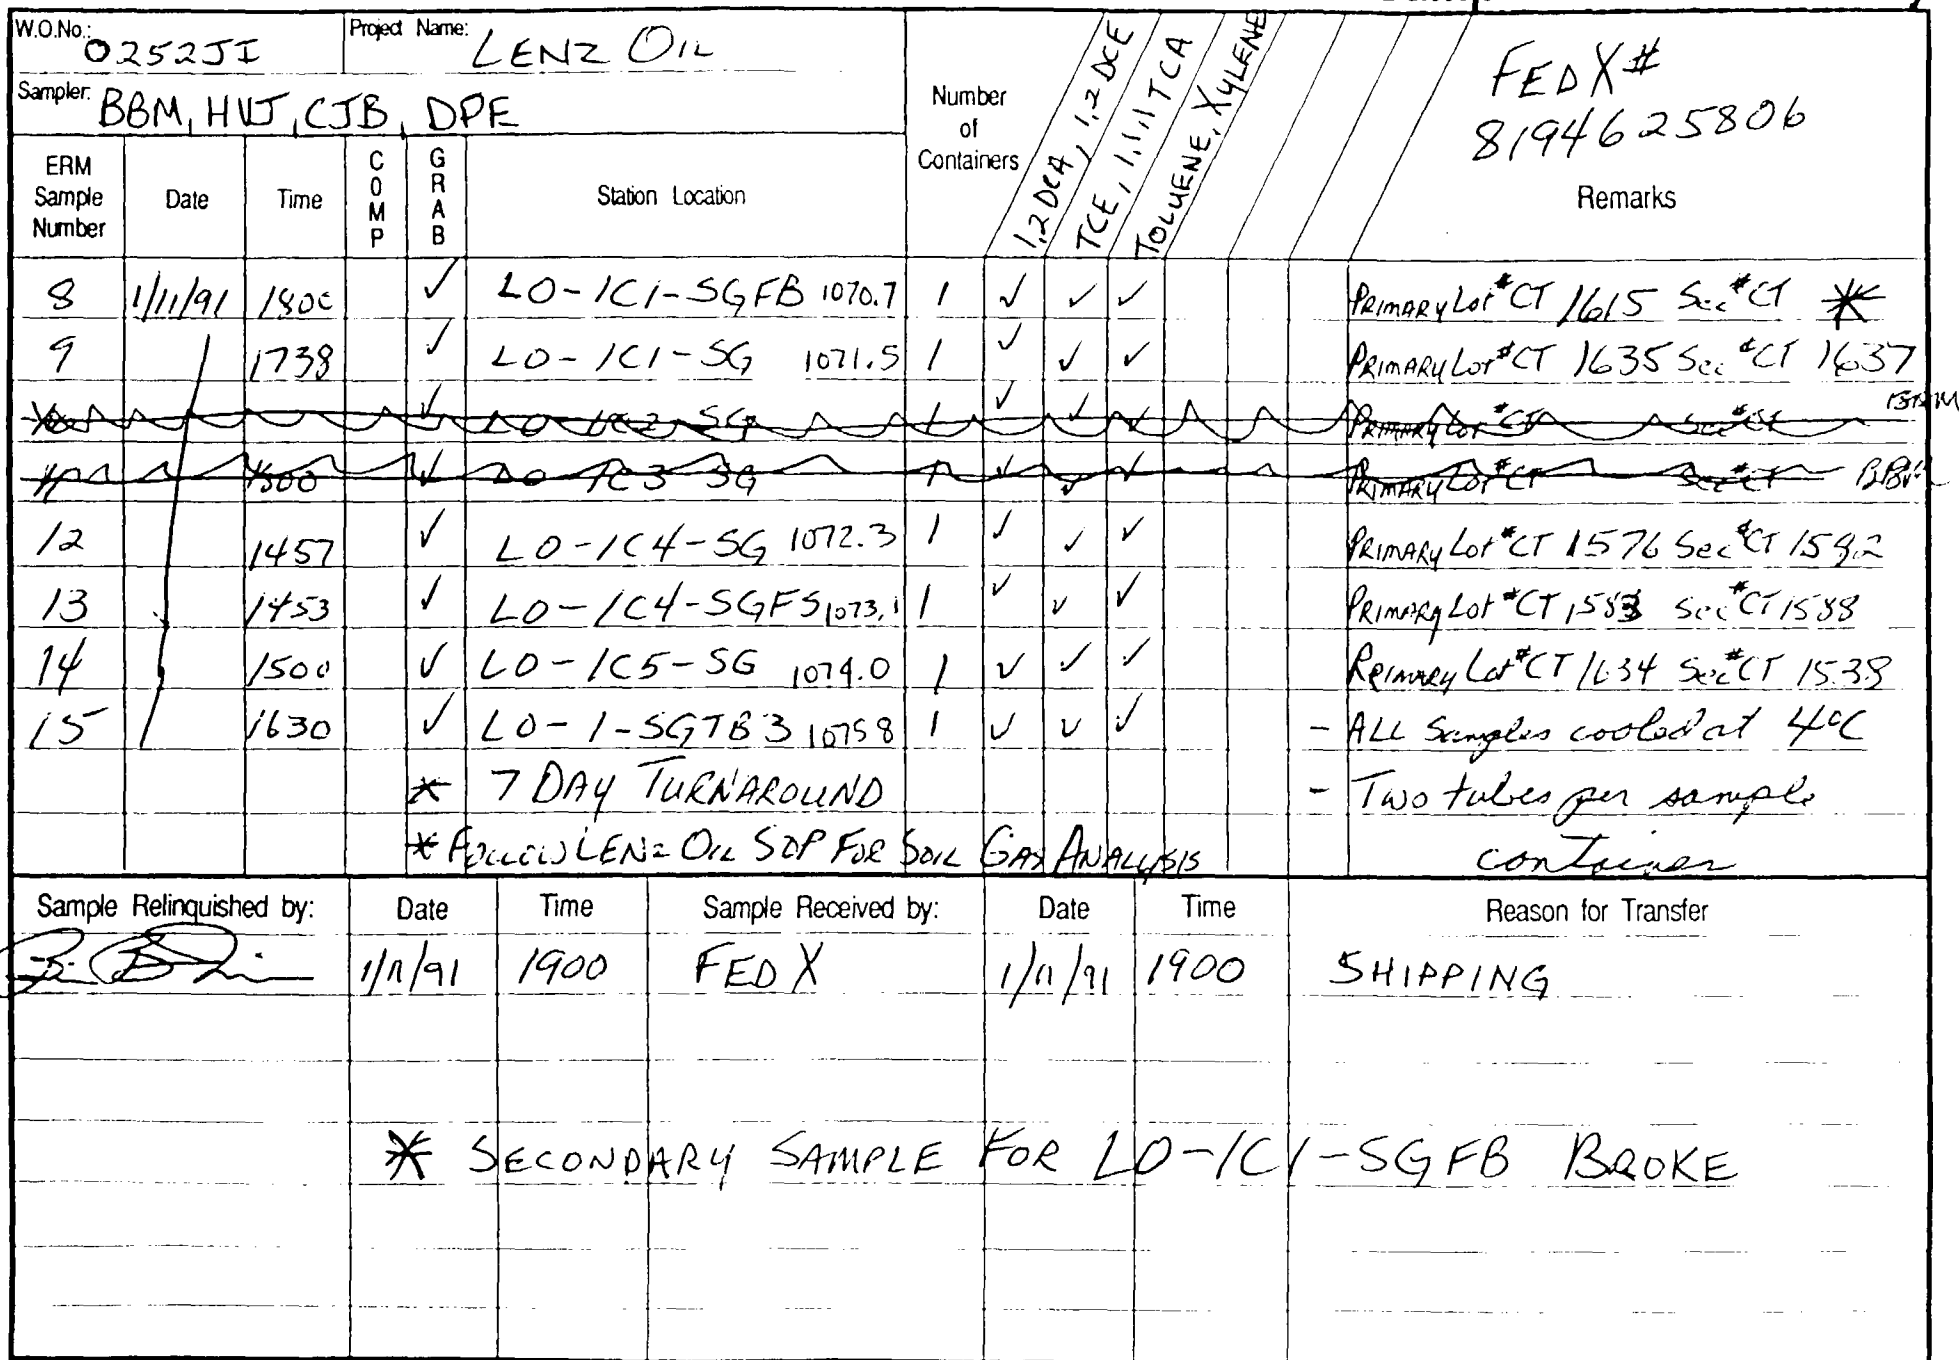 W.O.No.: 0252JI Project Name: LENZ OIL
Sampler: BBM, HVJ, CJB, DPE
ERM Sample Number Date Time COMP GRAB Station Location Number of Containers 1,2 DCA, 1,2 DCE TCE, 1,1,1 TCA TOLUENE, XYLENE Remarks
FED X# 8194625806
8 1/11/91 1800 ✓ LO-1C1-SGFB 1070.7 1 ✓ ✓ ✓ PRIMARY Lot #CT 1615 Sec #CT *
9 1738 ✓ LO-1C1-SG 1071.5 1 ✓ ✓ ✓ PRIMARY Lot #CT 1635 Sec #CT 1637
10 ✓ LO-1C2-SG 1 ✓ ✓ ✓ PRIMARY Lot #CT Sec #CT
11 1500 ✓ LO-1C3-SG 1 ✓ ✓ ✓ PRIMARY Lot #CT Sec #CT
12 1457 ✓ LO-1C4-SG 1072.3 1 ✓ ✓ ✓ PRIMARY Lot #CT 1576 Sec #CT
13 1453 ✓ LO-1C4-SGFS 1073.1 1 ✓ ✓ ✓ PRIMARY Lot #CT 1583 Sec #CT 1588
14 1500 ✓ LO-1C5-SG 1074.0 1 ✓ ✓ ✓ PRIMARY Lot #CT 1634 Sec #CT 1538
15 1630 ✓ LO-1-SGTB3 1075 8 1 ✓ ✓ ✓ - ALL Samples cooled at 4°C
* 7 DAY TURNAROUND - Two tubes per sample
* FOLLOW LENZ OIL SOP FOR SOIL GAS ANALYSIS container
Sample Relinquished by: Date Time Sample Received by: Date Time Reason for Transfer
1/11/91 1900 FED X 1/11/91 1900 SHIPPING
* SECONDARY SAMPLE FOR LO-1C1-SGFB BROKE